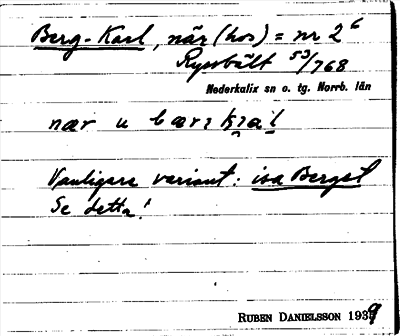 Berg-Karl, när (hos) = nr 2 6
Ryssbält 53/768
Nederkalix sn o. tg. Norrb. län
nær u bærɩ
Vanligare variant: isa Berget
Se detta!
RUBEN DANIELSSON 1939